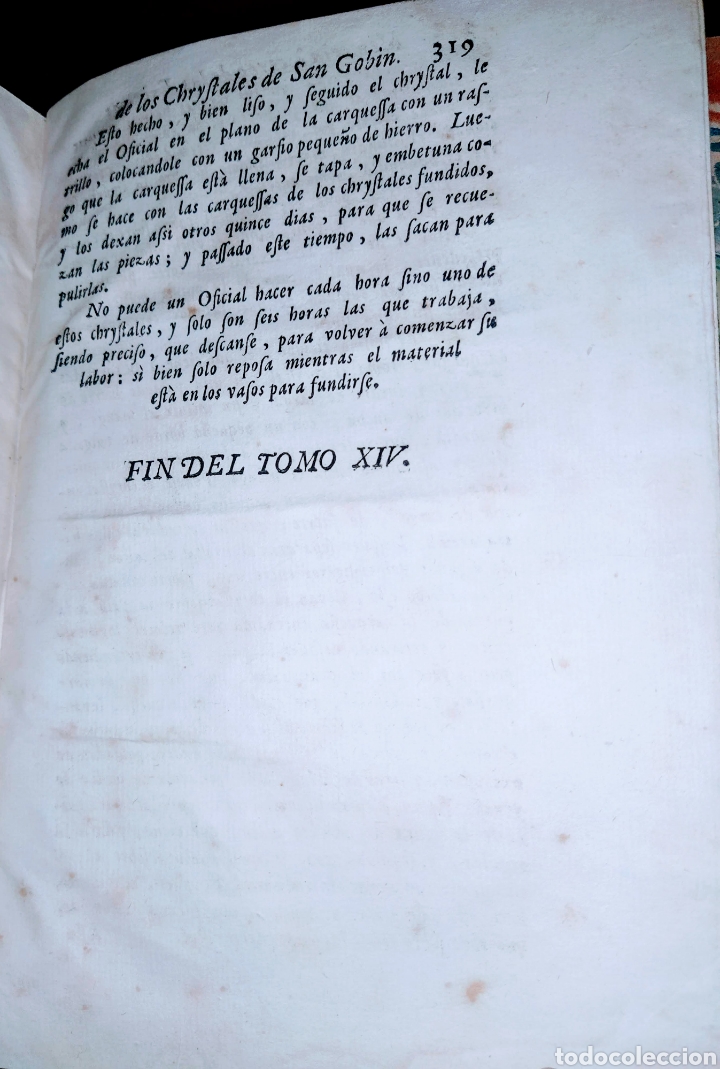 de los Chryſtales de San Gobin. 319
Eſto hecho, y bien liſo, y ſeguido el chryſtal, le
echa el Oficial en el plano de la carqueſſa con un raſ-
trillo, colocandole con un garfio pequeño de hierro. Lue-
go que la carqueſſa eſtà llena, ſe tapa, y embetuna co-
mo ſe hace con las carqueſſas de los chryſtales fundidos,
y los dexan aſsi otros quince dias, para que ſe recue-
zan las piezas; y paſſado eſte tiempo, las ſacan para
pulirlas.
No puede un Oficial hacer cada hora ſino uno de
eſtos chryſtales, y ſolo ſon ſeis horas las que trabaja,
ſiendo preciſo, que deſcanſe, para volver à comenzar ſu
labor: sì bien ſolo repoſa mientras el material
eſtà en los vaſos para fundirſe.
FIN DEL TOMO XIV.
todocoleccion